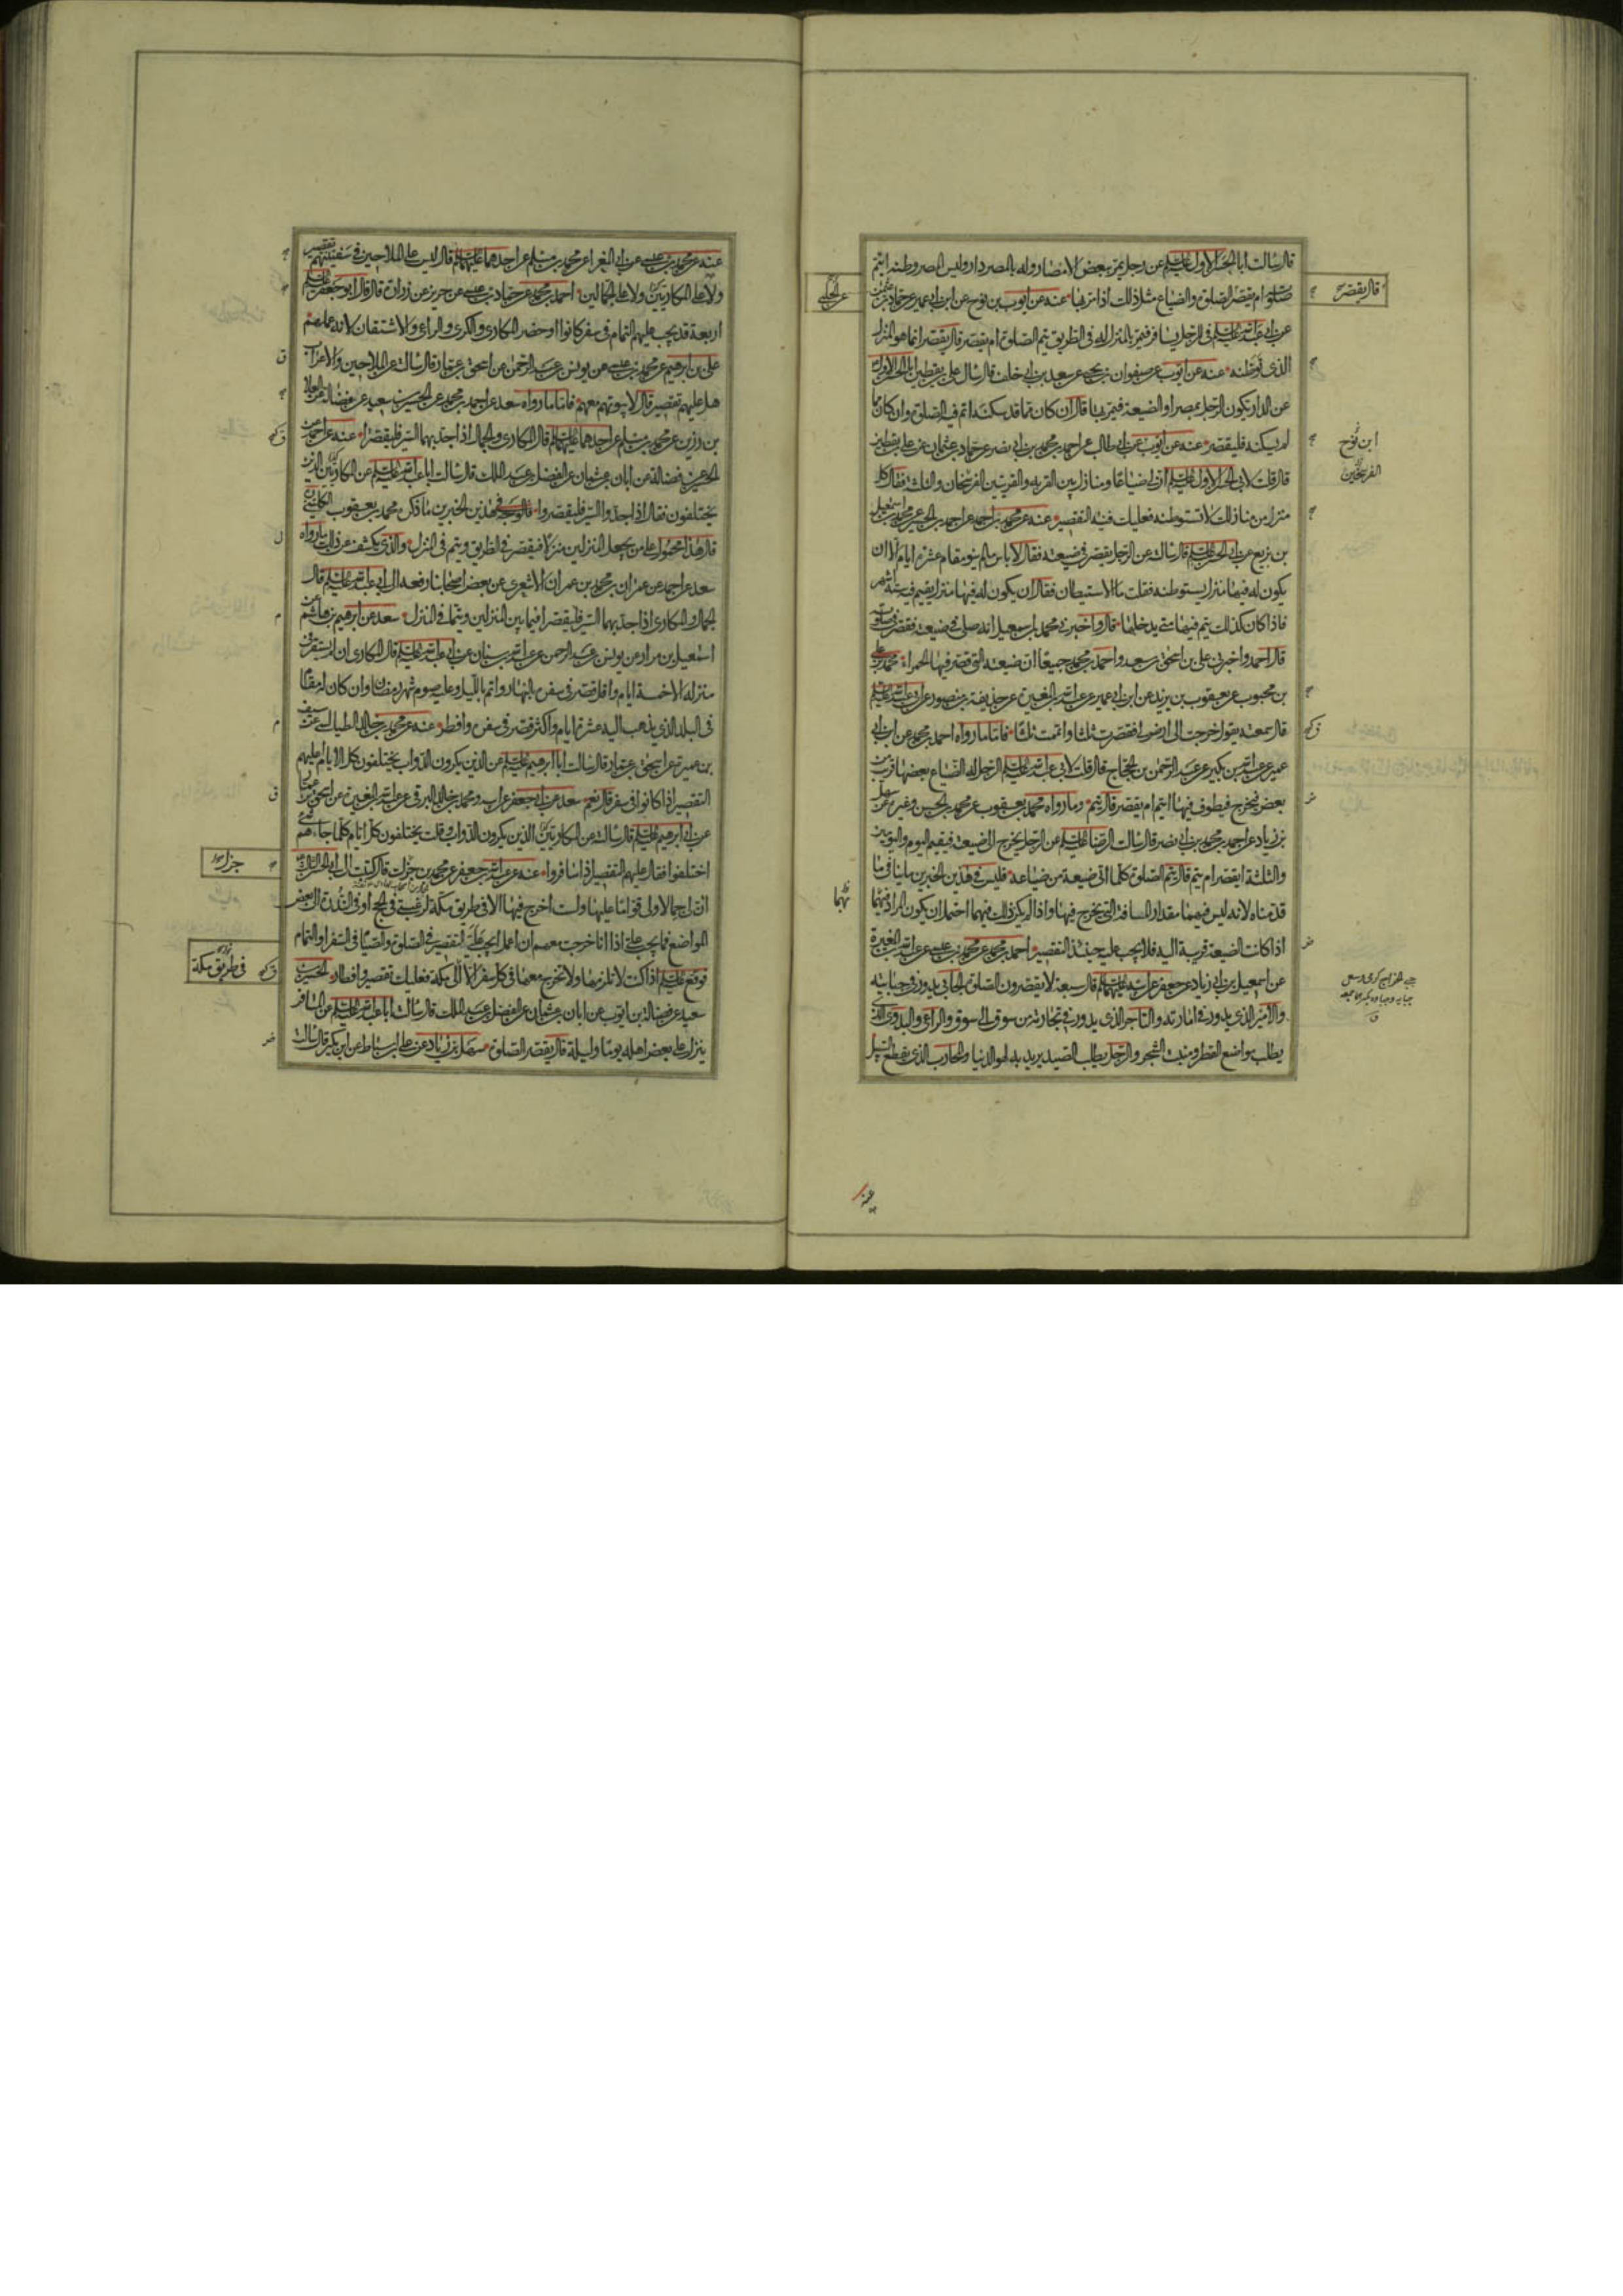 قال سالت ابا الحسن الاول عليه السلم عن رجل يمر ببعض الامصار وله بالمصر دار وليس المصر وطنه ايتم
صلوته ام يقصر قال يقصر الصلوة والضياع مثل ذلك اذا مر بها عنه عن ايوب بن نوح عن ابن ابي عمير عن حماد بن عثمن
عن الحلبي
عن ابي عبد الله عليه السلم في الرجل يسافر فيمر بالمنزل له في الطريق يتم الصلوة ام يقصر قال يقصر انما هو المنزل
الذي توطنه عنه عن ايوب عن صفوان بن يحيى عن سعد بن ابي خلف قال سال علي بن يقطين ابا الحسن الاول
عن الدار يكون للرجل بمصر او الضيعة فيمر بها قال ان كان مما قد سكنه اتم فيه الصلوة وان كان مما
لم يسكنه فليقصر عنه عن ايوب عن ابي طالب عن احمد بن محمد بن ابي نصر عن حماد بن عثمان عن علي بن يقطين
ابن نوح
قال قلت لابي الحسن الاول عليه السلم ان لي ضياعا ومنازل بين القرية والقريتين الفرسخان والثلثة فقال كل
الفرسخين
منزل من منازلك لا تستوطنه فعليك فيه التقصير عنه عن محمد بن احمد عن احمد بن الحسن عن محمد بن اسمعيل
بن بزيع عن ابي الحسن عليه السلم قال سالته عن الرجل يقصر في ضيعته فقال لا باس ما لم ينو مقام عشرة ايام الا ان
يكون له فيها منزل يستوطنه فقلت ما الاستيطان فقال ان يكون له فيها منزل يقيم فيه ستة اشهر
فاذا كان كذلك يتم فيها متى يدخلها قال واخبرني محمد بن اسمعيل انه صلى في ضيعته فقصر في صلوته
قال احمد واخبرني علي بن اسحق بن سعد واحمد بن محمد جميعا ان ضيعته التي قصر فيها الحمراء محمد بن علي
بن محبوب عن يعقوب بن يزيد عن ابن ابي عمير عن عبد الله بن المغيرة عن حذيفة بن منصور عن ابي عبد الله عليه السلم
قال سمعته يقول خرجت الى ارض لي فقصرت ثلثا واتممت ثلثا فاما ما رواه احمد بن محمد عن ابن ابي
عمير عن عبد الله بن بكير عن عبد الرحمن بن الحجاج قال قلت لابي عبد الله عليه السلم الرجل له الضياع بعضها قريب من
بعض فيخرج فيطوف فيها ايتم ام يقصر قال يتم وما رواه محمد بن يعقوب عن محمد بن الحسن وغيره عن سهل
بن زياد عن احمد بن محمد بن ابي نصر قال سالت الرضا عليه السلم عن الرجل يخرج الى ضيعته فيقيم اليوم واليومين
والثلثة ايقصر ام يتم قال يتم الصلوة كلما اتى ضيعة من ضياعه فليس في هذين الخبرين ما ينافي ما
قدمناه لانه ليس فيهما مقدار المسافة التي يخرج فيها واذا لم يكن ذلك فيهما احتمل ان يكون المراد بهما
اذا كانت الضيعة قريبة اليه فلا يجب عليه حينئذ التقصير احمد بن محمد عن محمد بن عيسى عن عبد الله بن المغيرة
عن اسمعيل بن ابي زياد عن جعفر عن ابيه عليهما السلم قال سبعة لا يقصرون الصلوة الجابي يدور في جبايته
والامير الذي يدور في امارته والتاجر الذي يدور في تجارته من سوق الى سوق والراعي والبدوي الذي
يطلب مواضع القطر ومنبت الشجر والرجل يطلب الصيد يريد به لهو الدنيا والمحارب الذي يقطع السبيل
عنه
عنه عن محمد بن عيسى عن ابي المغرا عن محمد بن مسلم عن احدهما عليهما السلم قال ليس على الملاحين في سفينتهم تقصير
ولا على المكاريين ولا على الجمالين احمد بن محمد عن حماد بن عيسى عن حريز عن زرارة قال قال ابو جعفر عليه السلم
اربعة قد يجب عليهم التمام في سفر كانوا او حضر المكاري والكرى والراعي والاشتقان لانه عملهم
علي بن ابرهيم عن محمد بن عيسى عن يونس بن عبد الرحمن عن اسحق بن عمار قال سالته عن الملاحين والاعراب
هل عليهم تقصير قال لا بيوتهم معهم فاما ما رواه سعد عن احمد بن محمد عن الحسين بن سعيد عن فضالة عن العلا
بن رزين عن محمد بن مسلم عن احدهما عليهما السلم قال المكاري والجمال اذا جد بهما السير فليقصرا عنه عن احمد عن
الحسين عن فضالة عن ابان بن عثمان عن الفضل بن عبد الملك قال سالت ابا عبد الله عليه السلم عن المكاريين الذين
يختلفون فقال اذا جدوا السير فليقصروا فالوجه في هذين الخبرين ما ذكره محمد بن يعقوب الكليني
قال هذا محمول على من يجعل المنزلين منزلا فيقصر في الطريق ويتم في المنزل والذي يكشف عن ذلك ما رواه
سعد عن احمد عن عمران بن محمد بن عمران الاشعري عن بعض اصحابنا رفعه الى ابي عبد الله عليه السلم قال
الجمال والمكاري اذا جد بهما السير فليقصرا فيما بين المنزلين ويتما في المنزل سعد عن ابرهيم بن هاشم عن
اسمعيل بن مرار عن يونس بن عبد الرحمن عن عبد الله بن سنان عن ابي عبد الله عليه السلم قال المكاري ان لم يستقر في
منزله الا خمسة ايام واقل قصر في سفره بالنهار واتم بالليل وعليه صوم شهر رمضان وان كان له مقام
في البلد الذي يذهب اليه عشرة ايام واكثر قصر في سفره وافطر عنه عن محمد بن خالد الطيالسي عن سيف
بن عميرة عن اسحق بن عمار قال سالت ابا ابرهيم عليه السلم عن الذين يكرون الدواب يختلفون كل الايام عليهم
التقصير اذا كانوا في سفر قال نعم سعد عن ابي جعفر عن ابيه ومحمد بن خالد البرقي عن عبد الله بن المغيرة عن اسحق بن عمار
عن ابي ابرهيم عليه السلم قال سالته عن المكاريين الذين يكرون الدواب وقلت يختلفون كل ايام كلما جاءهم شئ
اختلفوا فقال عليهم التقصير اذا سافروا عنه عن عبد الله بن جعفر عن محمد بن جزك قال كتبت الى ابي الحسن الثالث
ان لي جمالا ولي قوام عليها ولست اخرج فيها الا في طريق مكة لرغبتي في الحج او في الندرة الى بعض
المواضع فما يجب علي اذا انا خرجت معهم ان اعمل ايجب علي التقصير في الصلوة والصيام في السفر او التمام
فوقع عليه السلم اذا كنت لا تلزمها ولا تخرج معها في كل سفر الا الى مكة فعليك تقصير وافطار الحسين بن
في طريق مكة
سعيد عن فضالة بن ايوب عن ابان بن عثمان عن الفضل بن عبد الملك قال سالت ابا عبد الله عليه السلم عن المسافر
ينزل على بعض اهله يوما وليلة قال يقصر الصلوة سهل بن زياد عن علي بن اسباط عن ابن بكير قال سالت